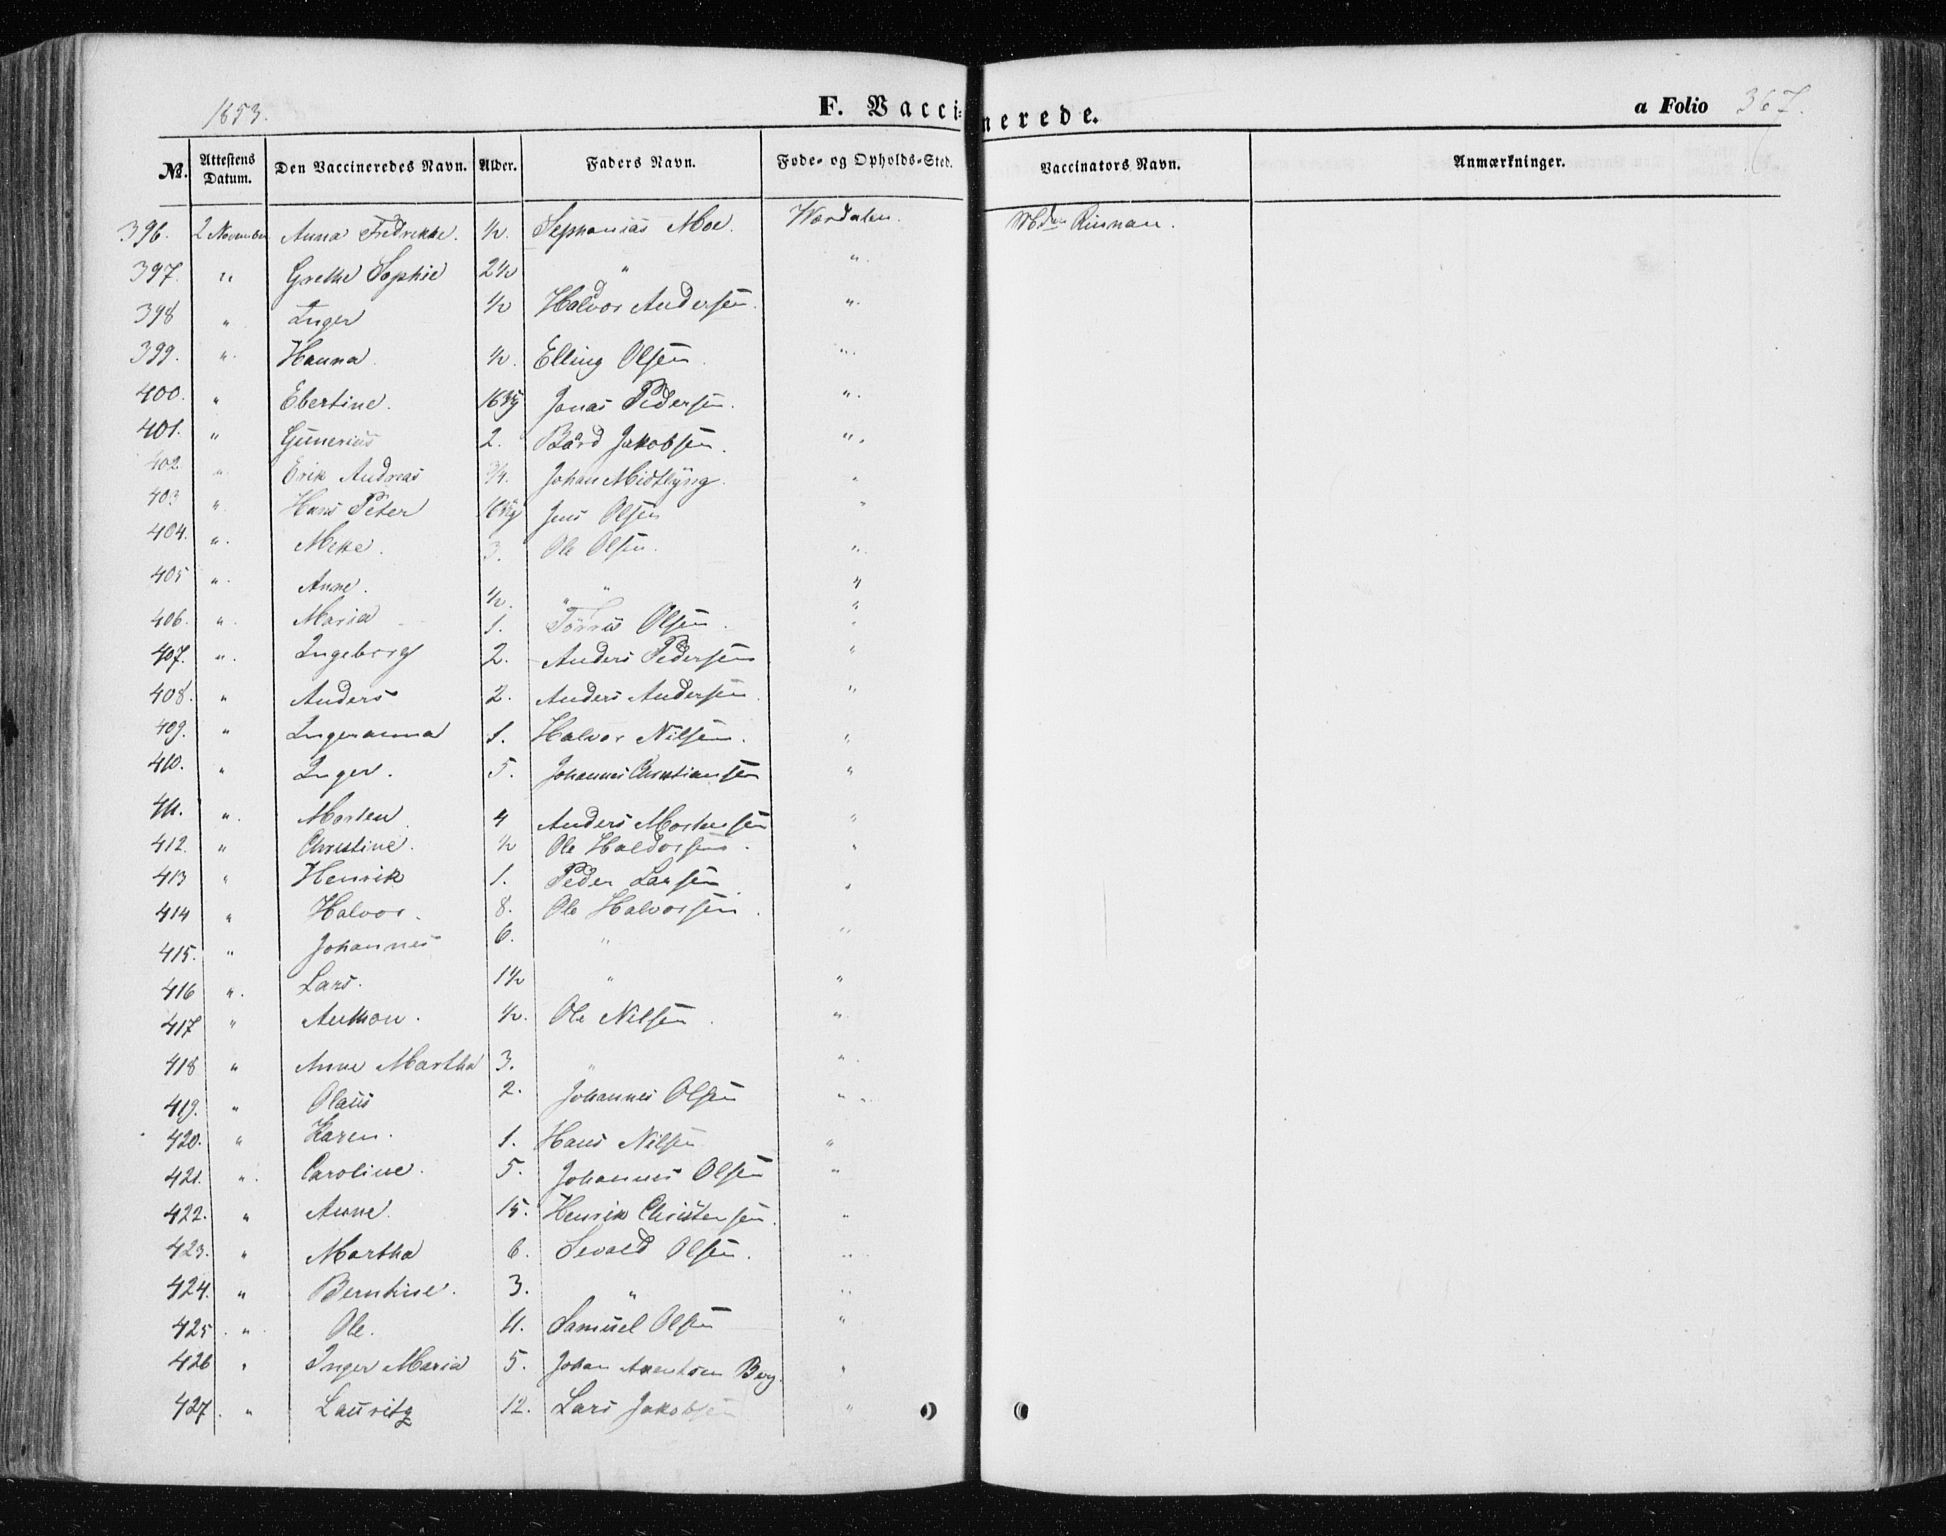 1853. F. Vaccinerede. a Folio 367.
No. Attestens Datum. Den Vaccineredes Navn. Alder. Faders Navn. Føde- og Opholds-Sted. Vaccinators Navn. Anmærkninger.
396. 2 November Anna Fredrikke. ½. Sephanias Moe. Værdalen. Rinnan.
397. " Grethe Sophie 2½ " "
398 " Inger ½ Halvor Andersen. "
399. " Hanna ½. Elling Olsen. "
400. " Ebertine. Jonas Pedersen. "
401. " Gunerius 2. Bård Jakobsen. "
402. " Erik Andreas ¾. Johan Midtlyng. "
403 " Hans Peter Jens Olsen "
404. " Mette. 3. Ole Olsen. "
405 " Anne. ½. " " "
406. " Maria 1. Tørris Olsen. "
407. " Ingeborg 2. Anders Pedersen "
408. " Anders 2. Anders Andersen. "
409. " Ingeranna 1. Halvor Nilsen. "
410. " Inger. 5. Johannes Christiansen "
411. " Morten. 4 Anders Mortensen "
412. " Christine. ½ Ole Haldorsen. "
413 " Henrik 1. Peder Larsen "
414 " Halvor. 8. Ole Halvorsen. "
415. " Johannes 6. " "
416 " Lars. 1½ " "
417 " Anthon. ½. Ole Nilsen. "
418 " Anne Martha 3. " "
419. " Olaus 2. Johannes Olsen "
420. " Karen. 1. Hans Nilsen "
421. " Caroline. 5. Johannes Olsen "
422. " Anne. 15. Henrik Christensen. "
423. " Martha 6. Sevald Olsen. "
424. " Berntine. 3. " "
425 " Ole. 11. Samuel Olsen "
426 " Inger Maria 5. Johan Arentsen Berg. "
427. " Lauritz 12. Lars Jakobsen "